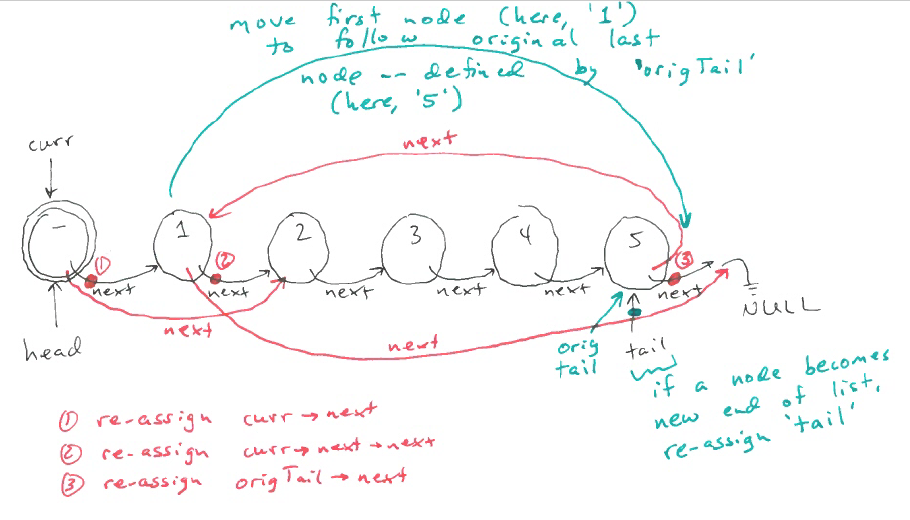 move first node (here, '1')
to follow original last
node -- defined by 'origTail'
(here, '5')
next
curr
- 1 2 3 4 5
① ② ③
next next next next next next
NULL
next
next
head
orig
tail
tail
if a node becomes
new end of list,
re-assign 'tail'
① re-assign curr→next
② re-assign curr→next→next
③ re-assign origTail→next